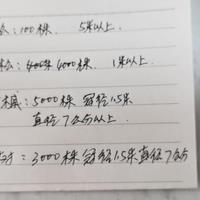 ：100株，5米以上．
松：4000株，1米以上．
槭：5000株 冠径1.5米
直径7公分以上．
：3000株冠径1.5米直径7公分